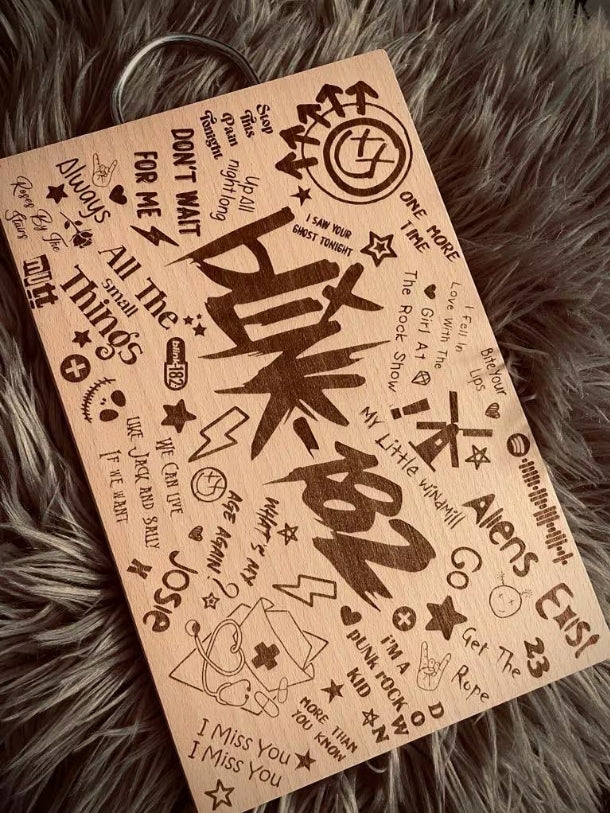 Stop
This
Pain
Tonight
DON'T WAIT
FOR ME
Up All
night long
Always
Roses By The
Stairs
mutt
All The
small
Things
I SAW YOUR
GHOST TONIGHT
ONE MORE
TIME
I Fell In
Love With The
Girl At
The Rock Show
Bite Your
Lips
blink-182
blink-182
MY Little windmill
We Can live
like Jack and Sally
If we want
WHAT'S MY
AGE AGAIN?
Josie
Aliens
Exist
Go
23
Get The
Rope
I'm A
punk rock
kid
DOWN
MORE THAN
YOU KNOW
I Miss You
I Miss You